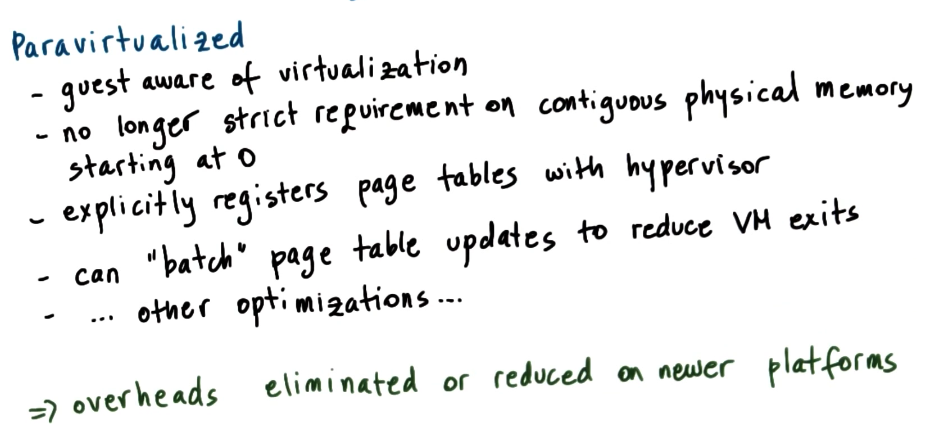 Paravirtualized
- guest aware of virtualization
- no longer strict requirement on contiguous physical memory
starting at 0
- explicitly registers page tables with hypervisor
- can "batch" page table updates to reduce VM exits
- ... other optimizations ...
=> overheads eliminated or reduced on newer platforms